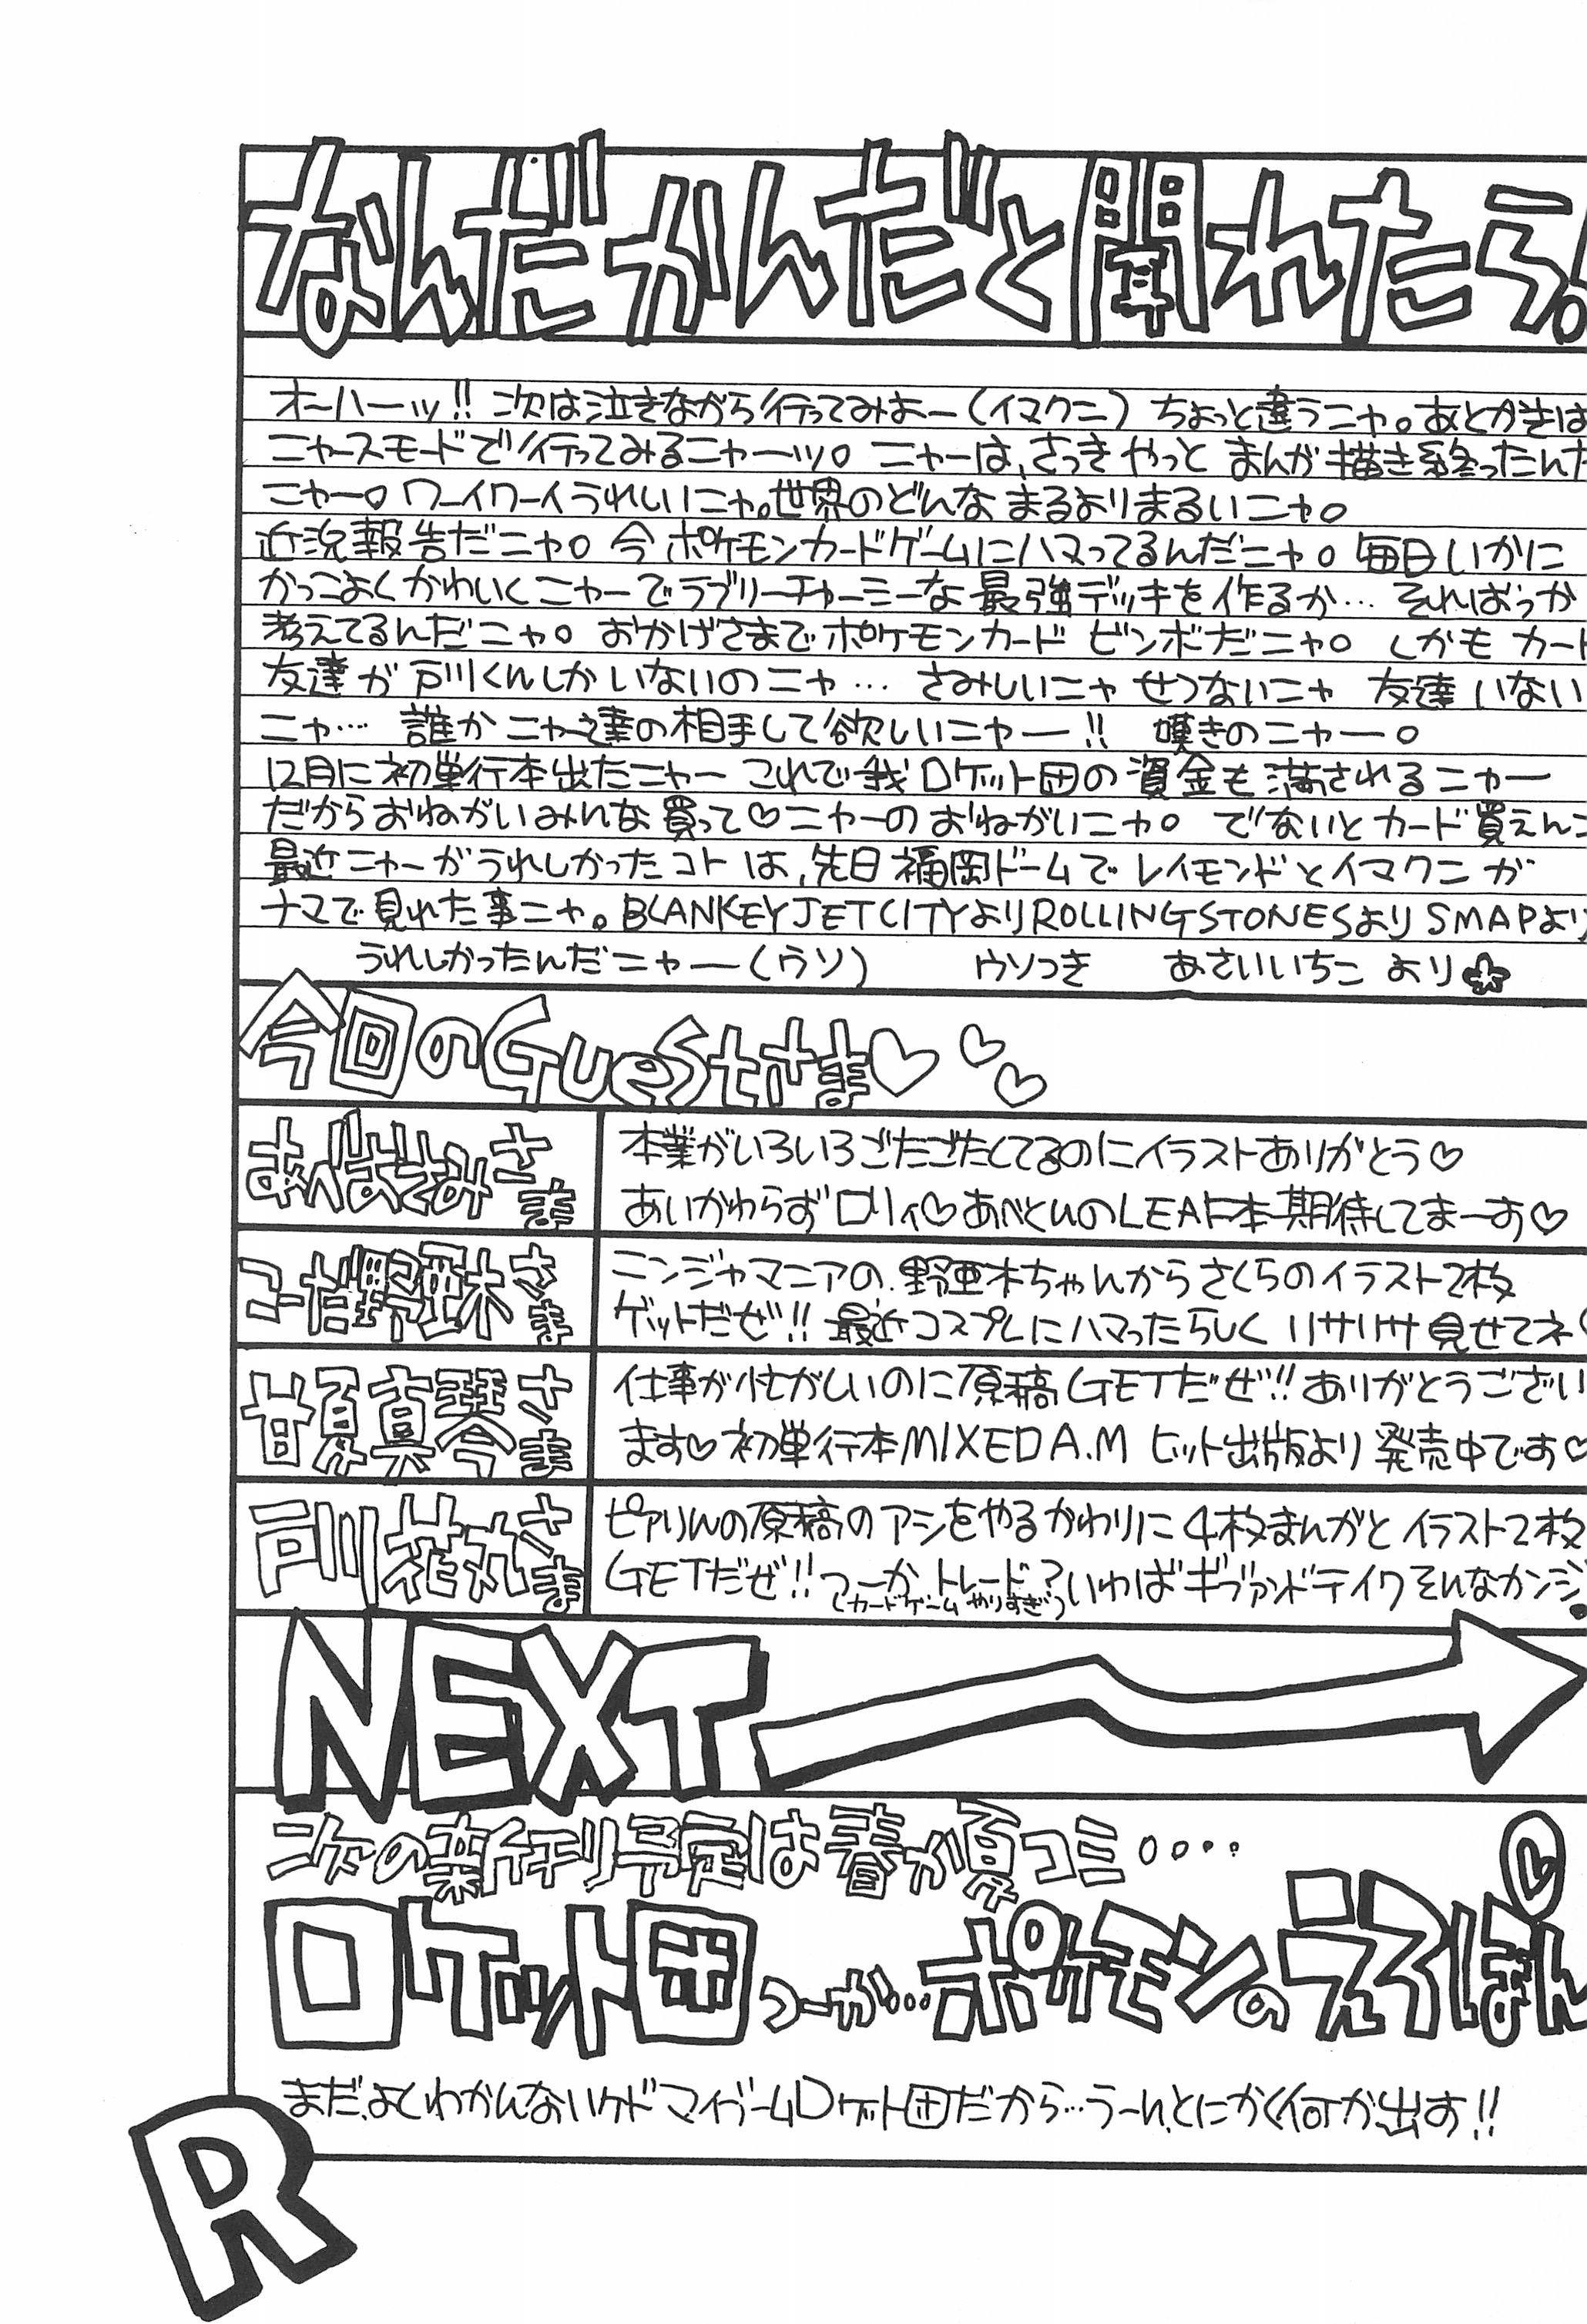 なんだかんだと聞かれたら!
オーハーッ!! 次は泣きながら行ってみよー(イマクニ) ちょっと違うニャ。あとがきは
ニャースモードで行ってみるニャーッ。 ニャーは、さっき やっと まんが描き終ったんだ
ニャー。ワーイワーイうれしいニャ。世界のどんな まるよりまるいニャ。
近況報告だニャ。今 ポケモンカードゲームにハマってるんだニャ。毎日いかに
かっこよくかわいくニャーでラブリーチャーミーな最強デッキを作るか… そればっか
考えてるんだニャ。おかげさまでポケモンカード ビンボだニャ。 しかも カード
友達が戸川くんしかいないのニャ… さみしいニャ せつないニャ 友達いない
ニャ… 誰かニャー達の相手して欲しいニャー!! 嘆きのニャー。
12月に初単行本出たニャー これで我ロケット団の資金も満されるニャー
だからおねがいみんな買って♡ニャーのおねがいニャ。 でないとカード買えんニ
最近ニャーがうれしかったコトは、先日福岡ドームでレイモンドとイマクニが
ナマで見れた事ニャ。BLANKEY JET CITYよりROLLING STONESよりSMAPより
うれしかったんだニャー(ウソ) ウソつき あさいいちこ より
今回のGuestさま♡♡♡
あべまさみさま
本業がいろいろごたごたしてるのにイラストありがとう♡
あいかわらずロリィ♡あべとひのLEAF本期待してまーす♡
こーだ野亜木さま
ニンジャマニアの野亜木ちゃんからさくらのイラスト2枚
ゲットだぜ!! 最近コスプレにハマったらしく リサリサ見せてネ
甘夏真琴さま
仕事が忙がしいのに原稿GETだぜ!!ありがとうござい
ます♡初単行本MIXED A.M ヒット出版より発売中です♡
戸川花丸さま
ピアりんの原稿のアシをやるかわりに4枚まんがとイラスト2枚
GETだぜ!! つーか トレード?いわばギブアンドテイクそんなカンジ。
(カードゲームやりすぎ)
NEXT
次の新刊予定は春か夏コミ....
ロケット団つーか…ポケモンのえろほん
し
まだ、よくわかんないケドマイブームロケット団だから…うーん、とにかく何か出す!!
R